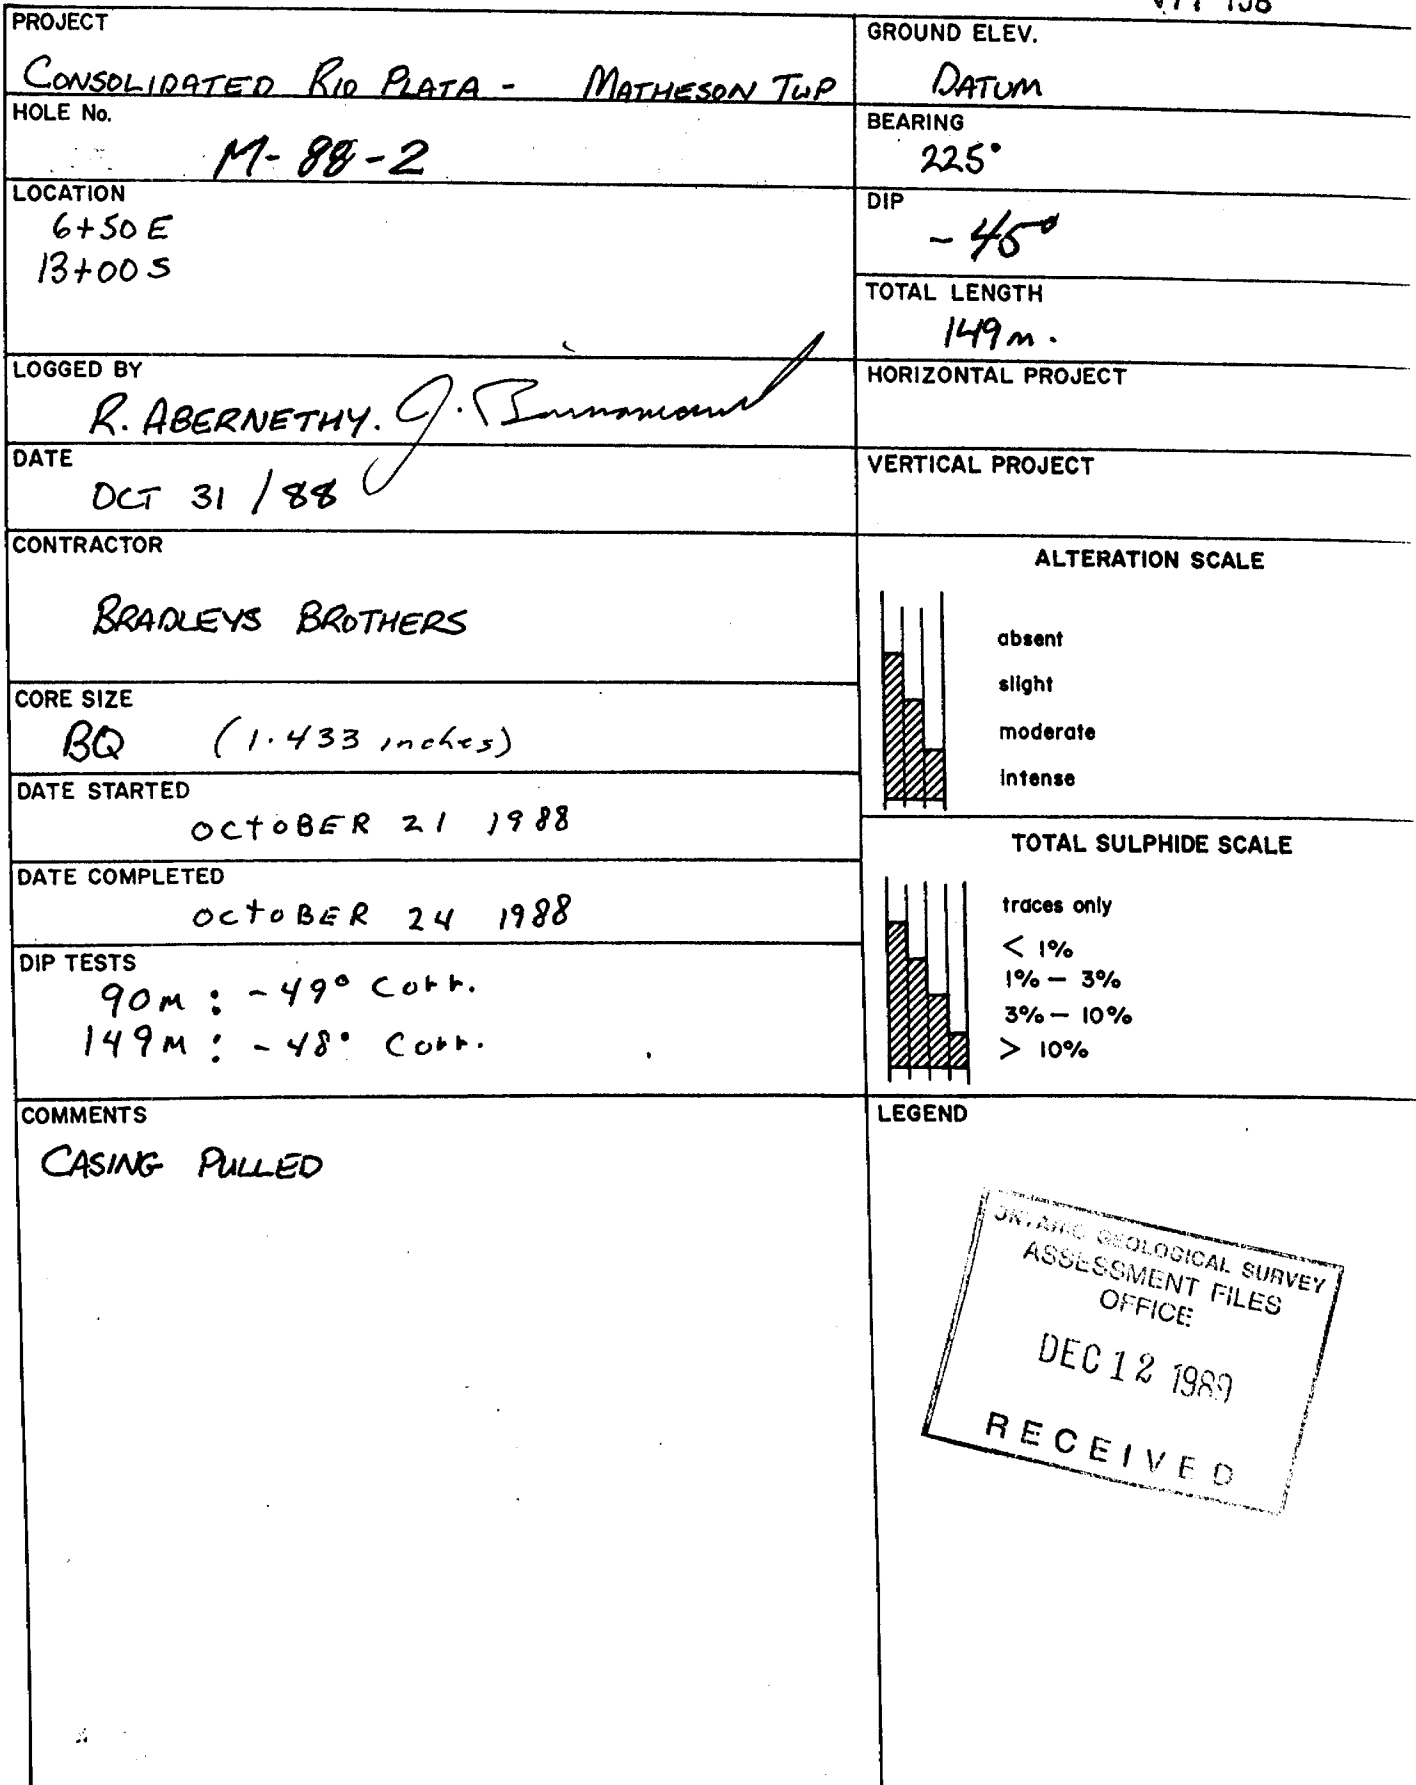 PROJECT
CONSOLIDATED RIO PLATA - MATHESON TWP
HOLE No.
M-88-2
LOCATION
6+50 E
13+00 S
LOGGED BY
R. ABERNETHY. J.
DATE
OCT 31 / 88
CONTRACTOR
BRADLEYS BROTHERS
CORE SIZE
BQ (1.433 inches)
DATE STARTED
OCTOBER 21 1988
DATE COMPLETED
OCTOBER 24 1988
DIP TESTS
90m : -49° Corr.
149m : -48° Corr.
COMMENTS
CASING PULLED
GROUND ELEV.
DATUM
BEARING
225°
DIP
-45°
TOTAL LENGTH
149 m.
HORIZONTAL PROJECT
VERTICAL PROJECT
ALTERATION SCALE
absent
slight
moderate
intense
TOTAL SULPHIDE SCALE
traces only
< 1%
1% – 3%
3% – 10%
> 10%
LEGEND
ONTARIO GEOLOGICAL SURVEY
ASSESSMENT FILES
OFFICE
DEC 12 1989
RECEIVED